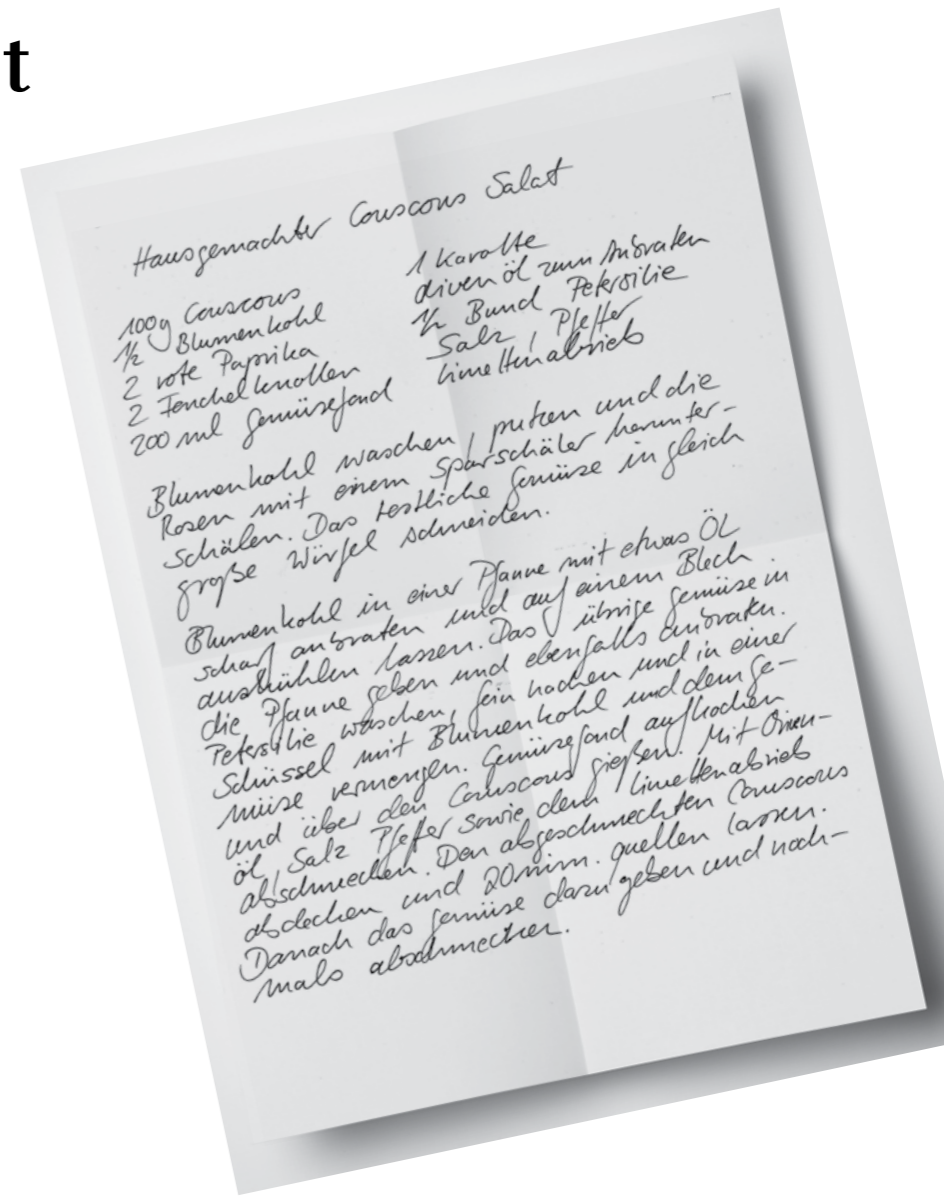 t
Hausgemachter Couscous Salat
100g Couscous
1/2 Blumenkohl
2 rote Paprika
2 Fenchelknollen
200 ml Gemüsefond
1 Karotte
Olivenöl zum Anbraten
1/2 Bund Petersilie
Salz, Pfeffer
Limettenabrieb
Blumenkohl waschen, putzen und die
Rosen mit einem Sparschäler herunter-
schälen. Das restliche Gemüse in gleich
große Würfel schneiden.
Blumenkohl in einer Pfanne mit etwas Öl
scharf anbraten und auf einem Blech
auskühlen lassen. Das übrige Gemüse in
die Pfanne geben und ebenfalls anbraten.
Petersilie waschen, fein hacken und in einer
Schüssel mit Blumenkohl und dem Ge-
müse vermengen. Gemüsefond aufkochen
und über den Couscous gießen. Mit Oliven-
öl, Salz Pfeffer sowie dem Limettenabrieb
abschmecken. Den abgeschmeckten Couscous
abdecken und 20 min. quellen lassen.
Danach das Gemüse dazugeben und noch-
mals abschmecken.